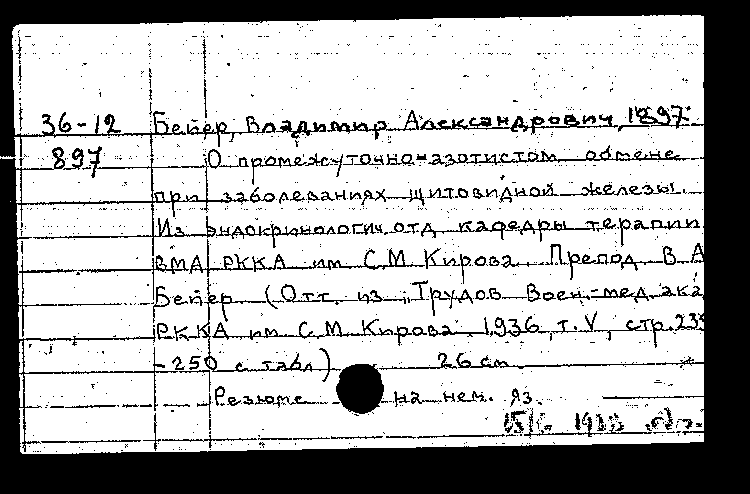 36-12 Бейер, Владимир Александрович, 1897-
897 О промежуточно-азотистом обмене
при заболеваниях щитовидной железы.
Из эндокринологич. отд. кафедры терапии
ВМА РККА им С.М. Кирова. Препод. В.А
Бейер (Отт. из „Трудов Воен.-мед. ака
РККА им С.М. Кирова 1936, т. V, стр. 239
-250 с табл.) 26 см.
Резюме на нем. яз.